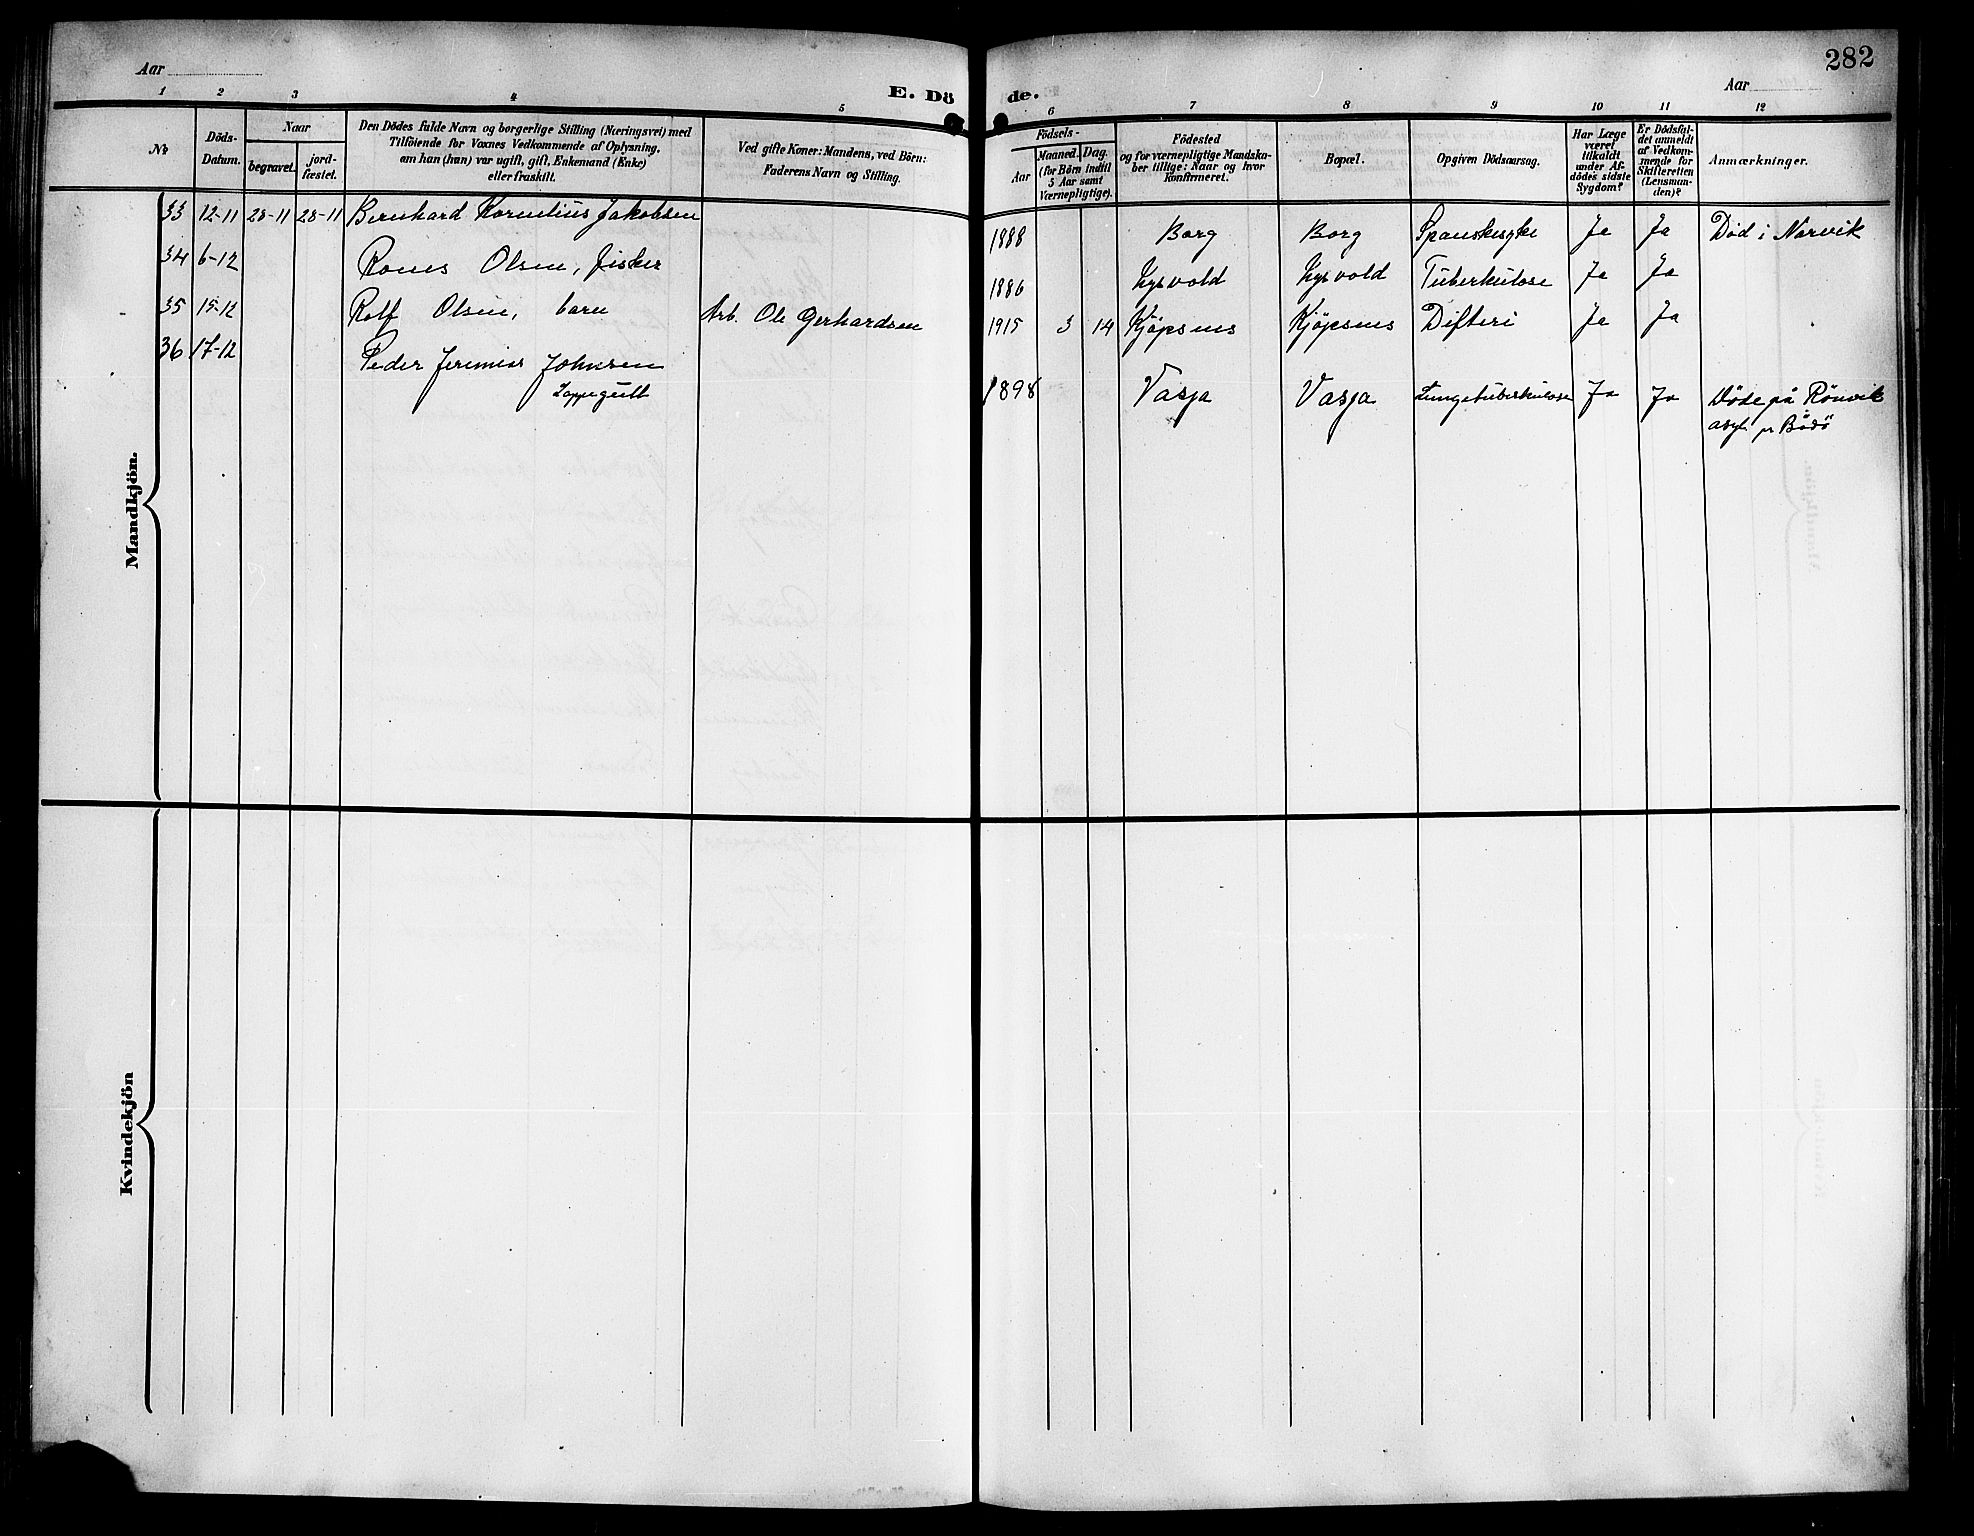 282
Aar
Aar
E. Dö
de.
1 2 3 4 5 6 7 8 9 10 11 12
No
Döds-
Datum.
Naar
begravet.
jord-
fæstet.
Den Dödes fulde Navn og borgerlige Stilling (Næringsvei) med
Tilföiende for Voxnes Vedkommende af Oplysning,
om han (hun) var ugift, gift, Enkemand (Enke)
eller fraskilt.
Ved gifte Koner: Mandens, ved Börn:
Faderens Navn og Stilling.
Födsels-
Aar
Maaned. Dag.
(for Børn indtil
5 Aar samt
Værnepligtige).
Födested
og for værnepligtige Mandska-
ber tillige: Naar og hvor
Konfirmeret.
Bopæl.
Opgiven Dödsaarsag.
Har Læge
været
tilkaldt
under Af-
dödes sidste
Sygdom?
Er Dødsfal-
det anmeldt
af Vedkom-
mende for
Skifteretten
(Lensman-
den)?
Anmærkninger.
Mandkjön.
33 12-11 28-11 28-11 Bernhard Kornelius Jakobsen 1888 Borg Borg Spanskesyke Ja Ja Død i Narvik
34 6-12 Olsen, fisker 1886 Tuberkulose Ja Ja
35 15-12 Rolf Olsen, barn Arb. Ole Gerhardsen 1915 3 14 Kjöpsnes Kjöpsnes Difteri Ja Ja
36 17-12 Peder Jeremias Johnsen
Lappegutt 1898 Vasja Vasja Lungetuberkulose Ja Ja Døde på Rönvik
asyl pr Bödö
Kvindekjön